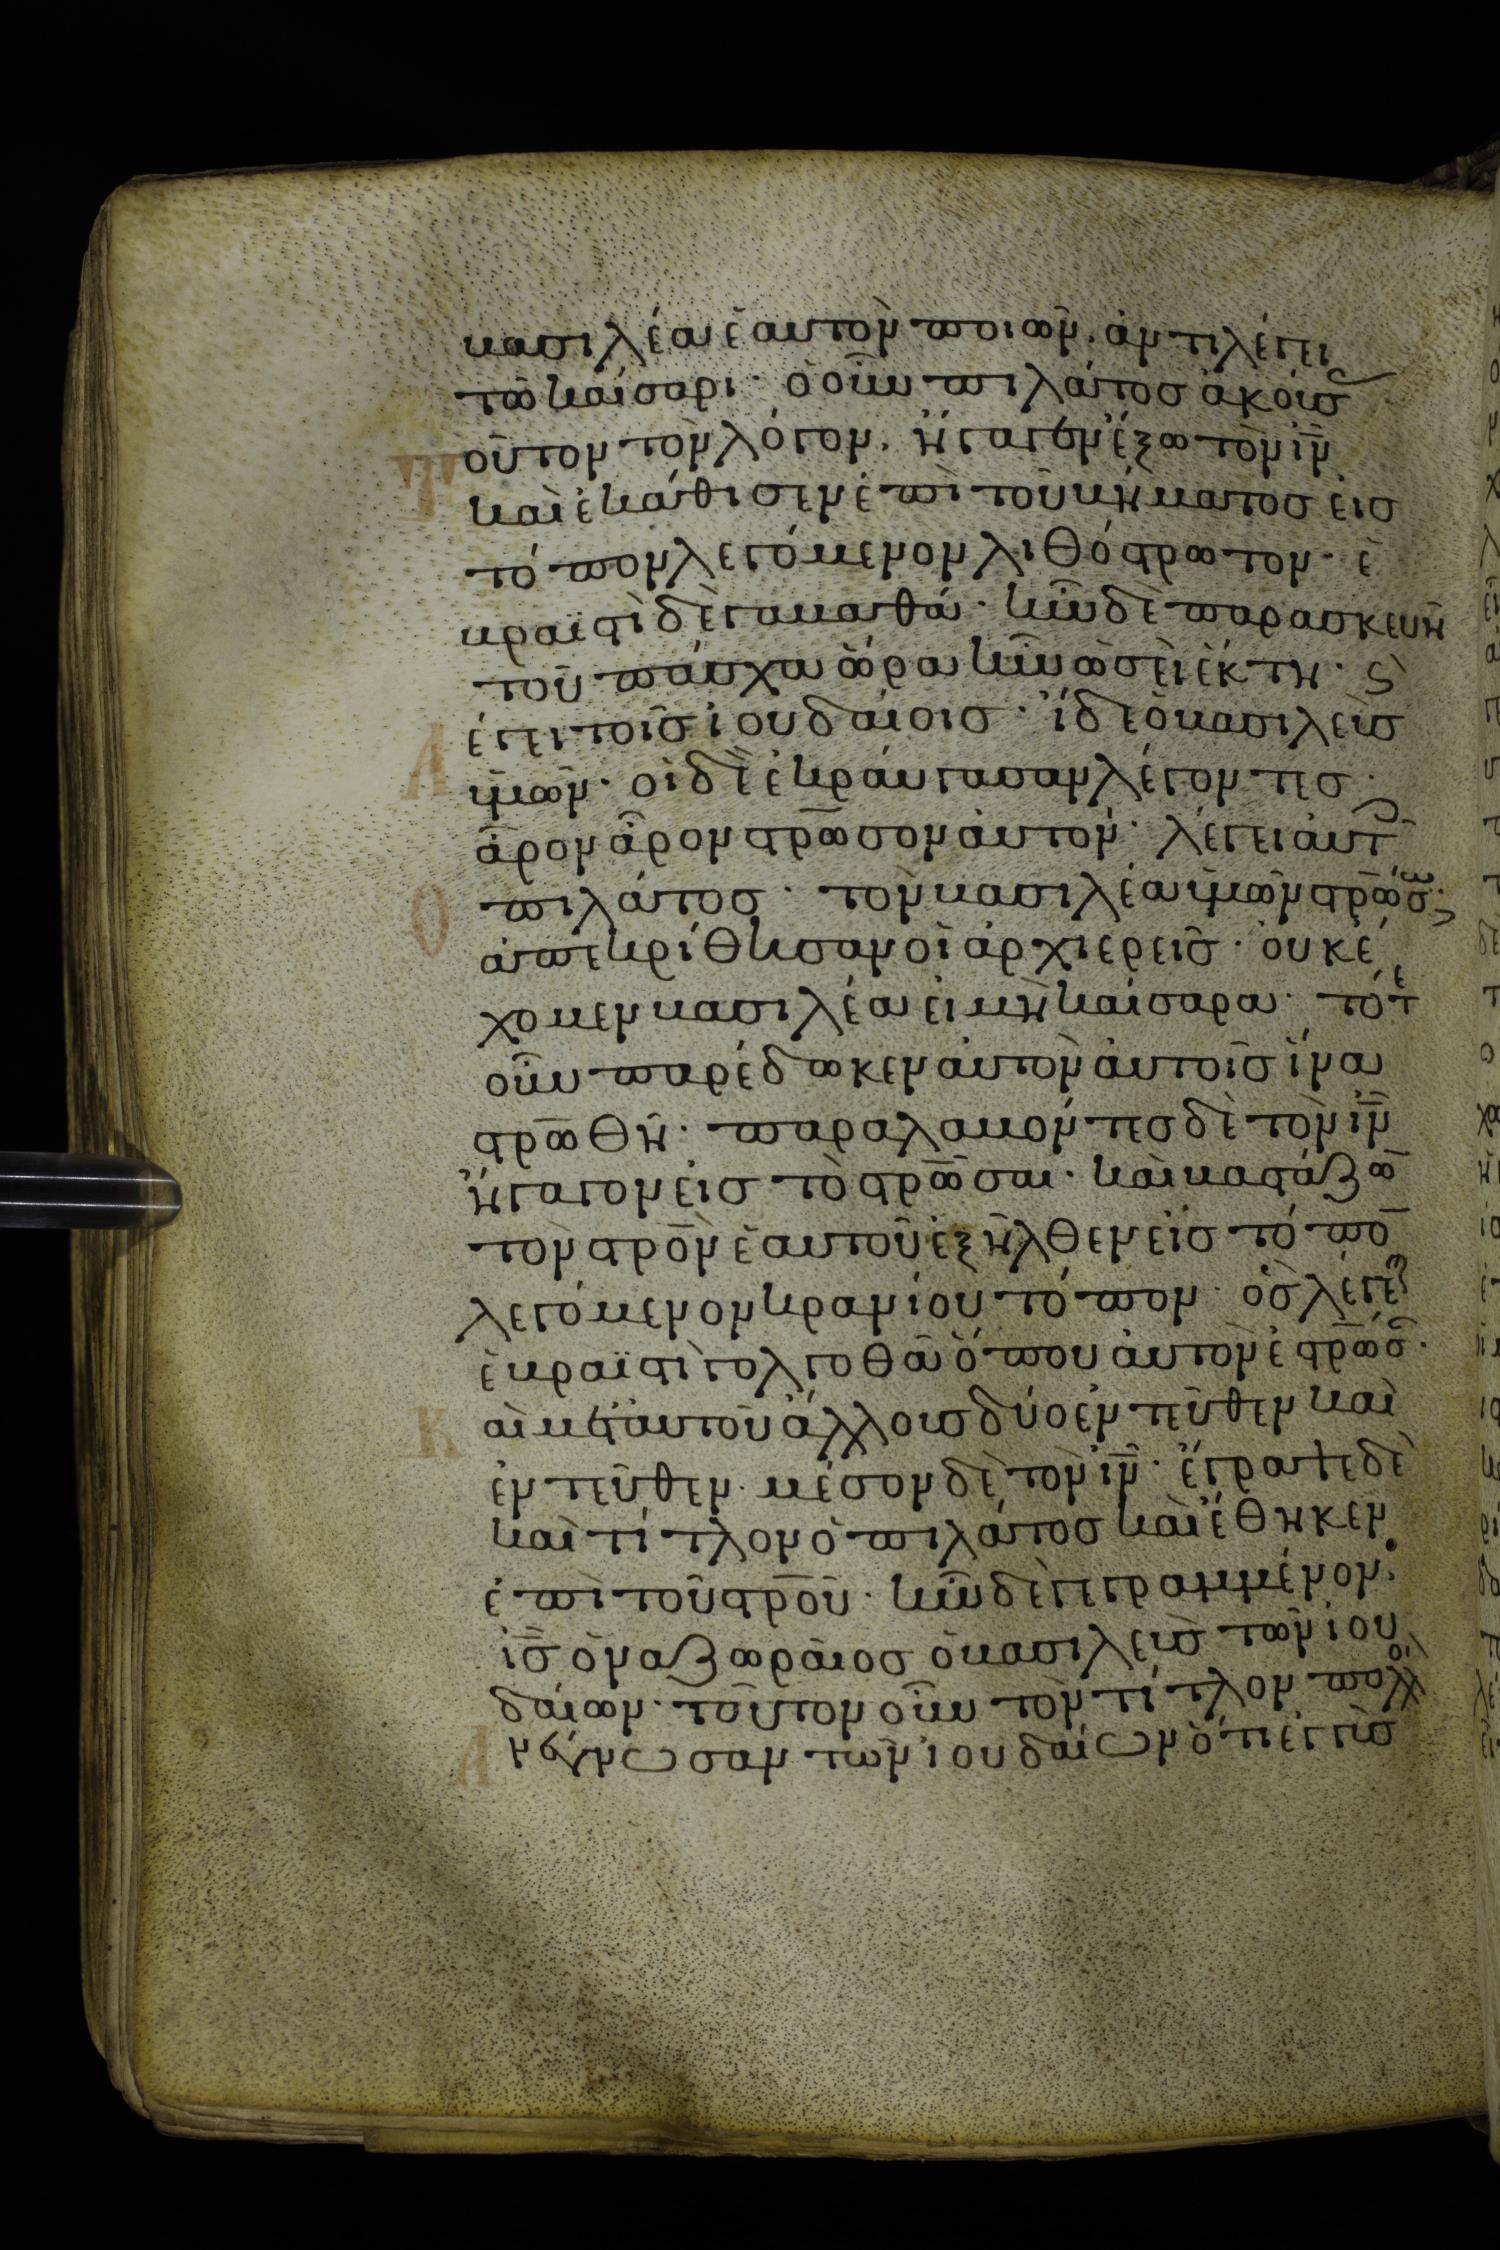 βασιλέα ἑαυτὸν ποιῶν· ἀντιλέγει
τῶ καίσαρι· ὁ οὖν πιλάτος ἀκούσ
Τοῦτον τὸν λόγον, ἤγαγεν ἔξω τὸν ἰν
καὶ ἐκάθισεν ἐπὶ τοῦ βήματος εἰς
τόπον λεγόμενον λιθόστρωτον· ἑ
βραϊστὶ δὲ γαββαθά· ἦν δὲ παρασκευὴ
τοῦ πάσχα ὥρα ἦν ὡσεὶ ἕκτη· ϛ
Λέγει τοῖς ἰουδαίοις· ἴδε ὁ βασιλεὺς
ὑμῶν· οἱ δὲ ἐκραύγασαν λέγοντες·
ἆρον ἆρον στρωσον αὐτόν· λέγει αὐτ
Ὁ πιλάτος· τὸν βασιλέα ὑμῶν στρώσω·
ἀπεκρίθησαν οἱ ἀρχιερεῖς· οὐκ ἔ
χομεν βασιλέα εἰ μὴ καίσαρα· τότε
οὖν παρέδωκεν αὐτὸν αὐτοῖς ἵνα
στρωθῆ· παραλαβόντες δὲ τὸν ἰν
ἤγαγον εἰς τὸ στρωσαι· καὶ βαστάζω
τὸν στρον ἑαυτοῦ ἐξῆλθεν εἰς τόπο
λεγόμενον κρανίου τόπον· ὃς λέγετ
ἑβραϊστὶ γολγοθᾶ ὅπου αὐτὸν ἐστρωσ·
Καὶ μετ αὐτοῦ ἄλλους δύο ἐντεῦθεν καὶ
ἐντεῦθεν· μέσον δὲ τὸν ἰν· ἔγραψε δὲ
καὶ τίτλον ὁ πιλάτος καὶ ἔθηκεν
ἐπὶ τοῦ στροῦ· ἦν δὲ γεγραμμένον·
ἰς ὁ ναζωραῖος ὁ βασιλεὺς τῶν ἰου
δαίων· τοῦτον οὖν τὸν τίτλον πολλοὶ
Ἀνέγνωσαν τῶν ἰουδαίων ὅτι ἐγγὺς